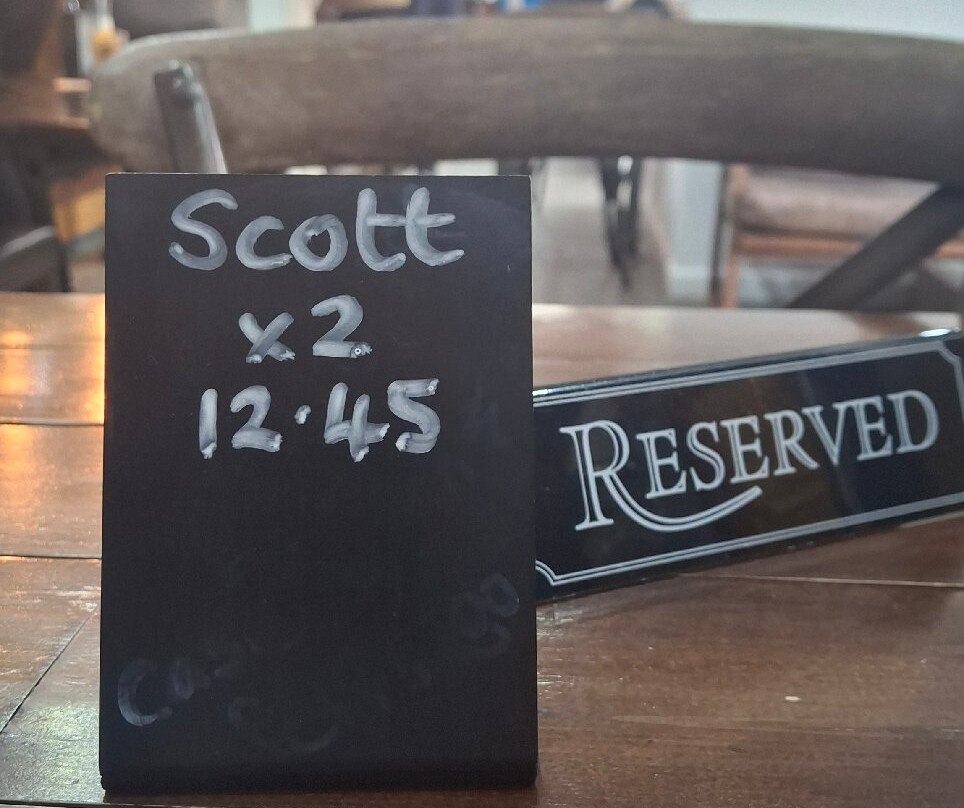 Scott
x2
12.45
RESERVED